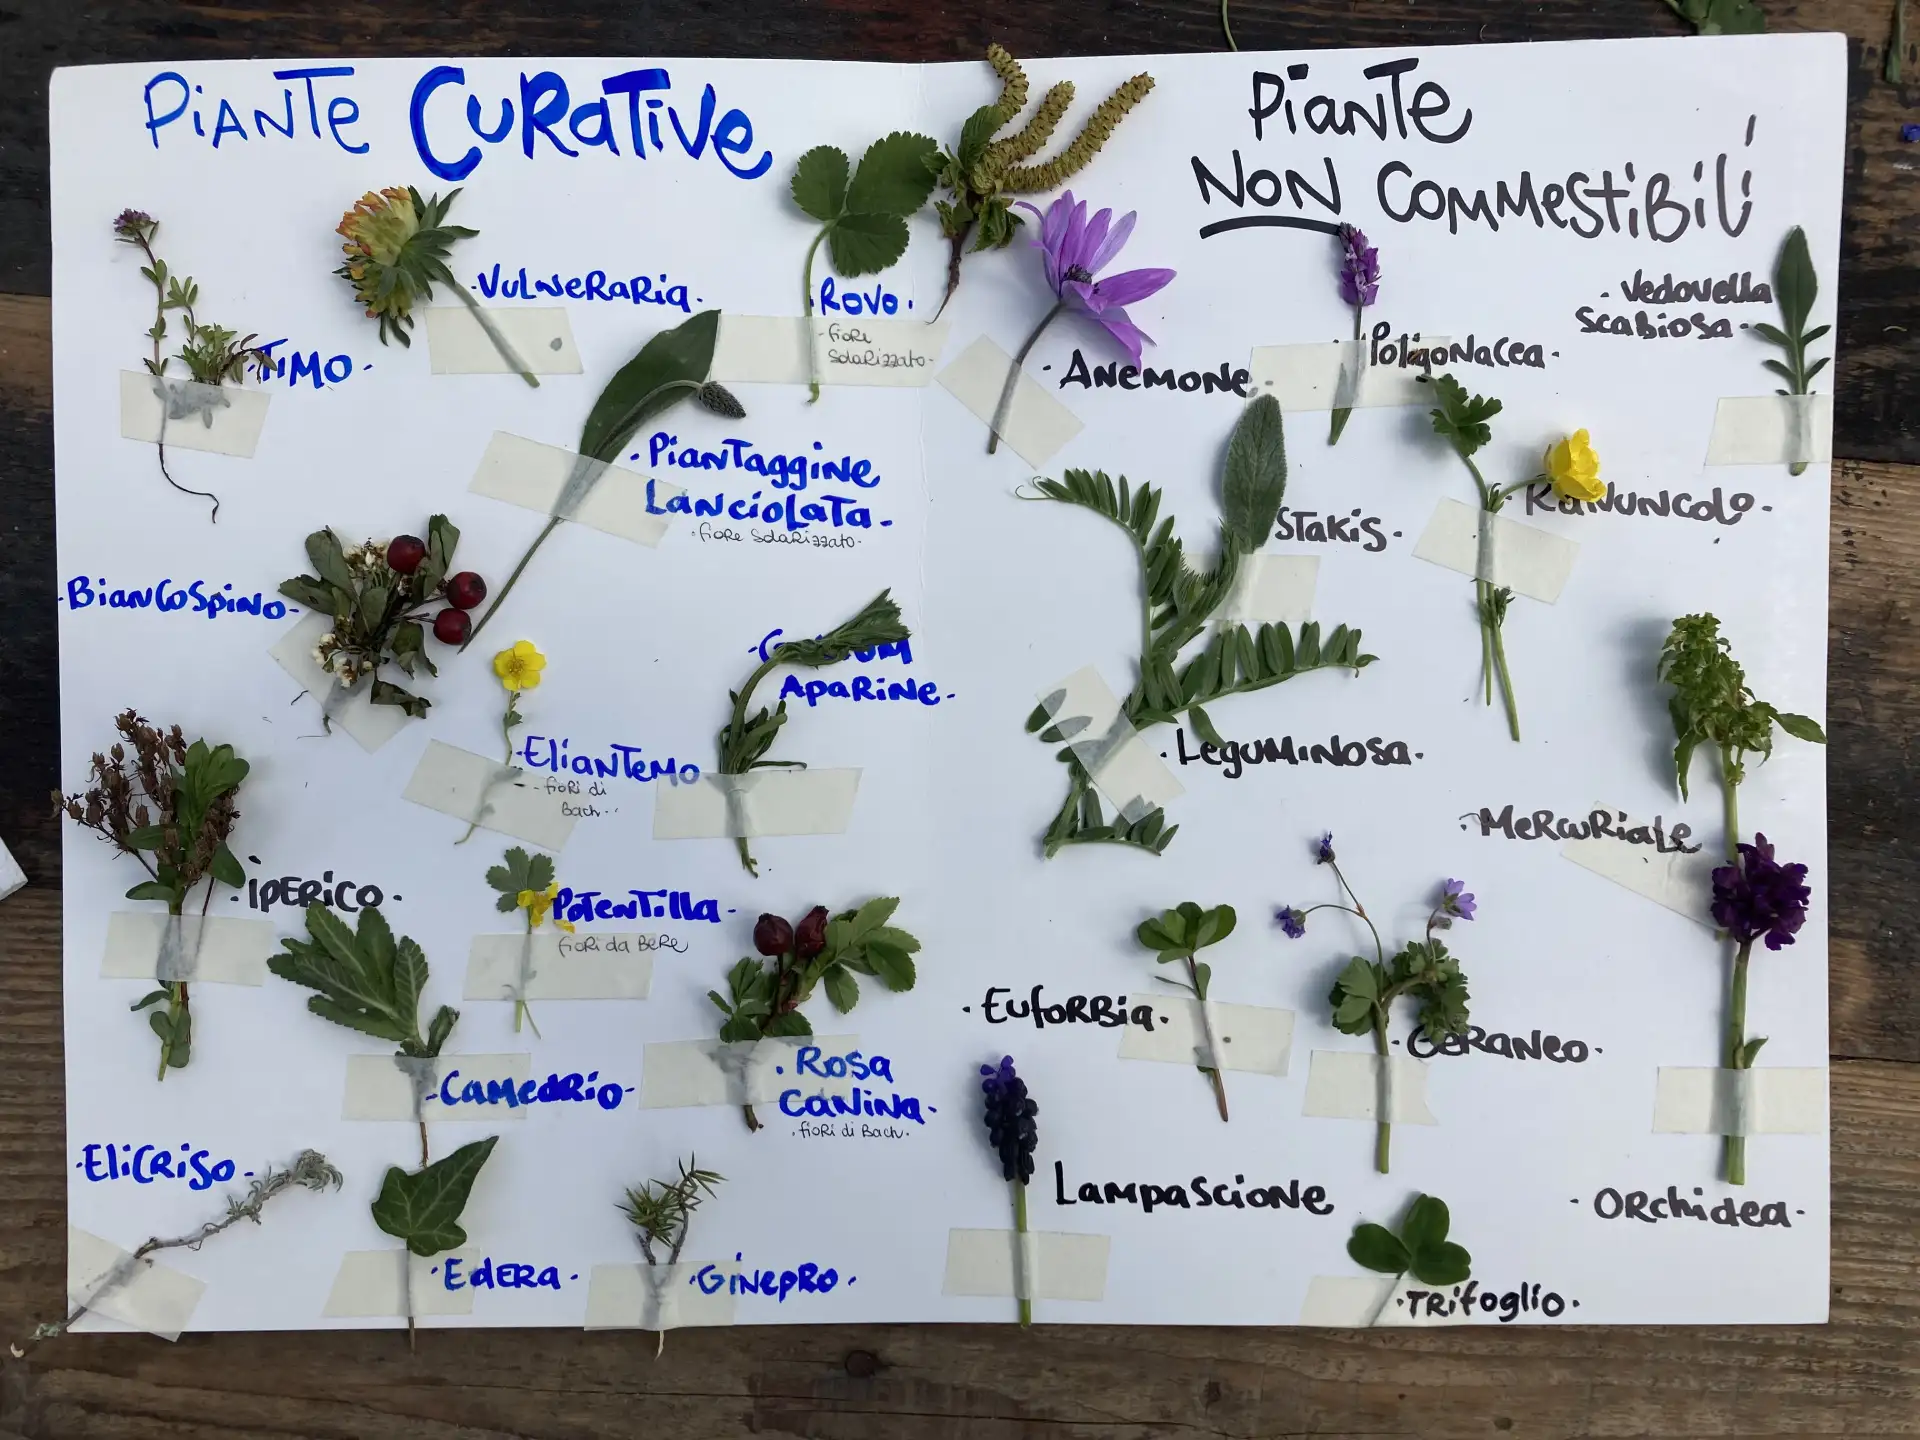 PiANTe CURaTiVe
·TiMO·
·VULNeRaRia·
·ROVO·
-fioRe
SolaRizzato-
·PianTaggine
LanCioLaTa·
·fioRe SolaRizzato·
·BianCoSpiNo·
·EliaNTeMO
-fioRi di
Bach··
APaRiNe·
·iPERiCO·
POTeNTilla·
fioRi da BeRe
·CaMedRio·
·Rosa
CaNiNa·
·fioRi di Bach·
·EliCRiSo·
·EdERa·
·GiNepRo·
PiaNTe
NON CoMMeSTiBiLi
·ANeMONe·
PoligoNaCea·
·Vedovella
ScaBiosa·
STakiS·
RaNUNColo·
·LeguMiNosa·
·MeRCuRiaLe
·EufoRBia·
·GeRaNeo·
LaMpaScioNe
·ORchidea·
·TRifoglio·